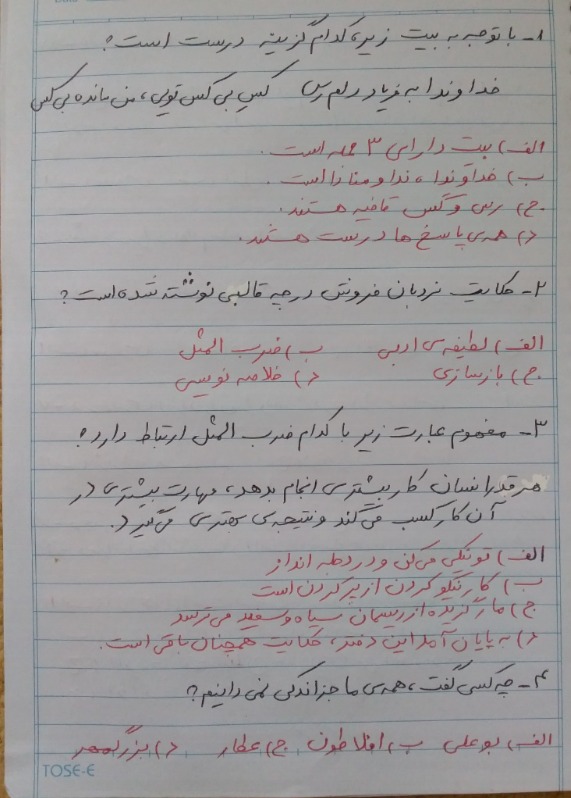 ۱- با توجه به بیت زیر، کدام گزینه درست است؟
خداوندا به فریاد دلم رس کس بی کس تویی، من مانده بی کس
الف) بیت دارای ۳ جمله است.
ب) خداوندا، ندا و منادا است.
ج) رس و کس قافیه هستند.
د) همه‌ی پاسخ ها درست هستند.
۲- حکایت نردبان فروش در چه قالبی نوشته شده است؟
الف) لطیفه‌ی ادبی ب) ضرب المثل
ج) بازسازی د) خلاصه نویسی
۳- مفهوم عبارت زیر با کدام ضرب المثل ارتباط دارد؟
هر قدر انسان کار بیشتری انجام بدهد، مهارت بیشتری در
آن کار کسب می‌کند و نتیجه‌ی بهتری می‌گیرد.
الف) تو نیکی می‌کن و در دجله انداز
ب) کار نیکو کردن از پر کردن است
ج) مار گزیده از ریسمان سیاه و سفید می‌ترسد
د) به پایان آمد این دفتر، حکایت همچنان باقی است.
۴- چه کسی گفت، همه‌ی ما جز اندکی نمی دانیم؟
الف) بوعلی ب) افلاطون ج) عطار د) بزرگمهر
TOSE-E